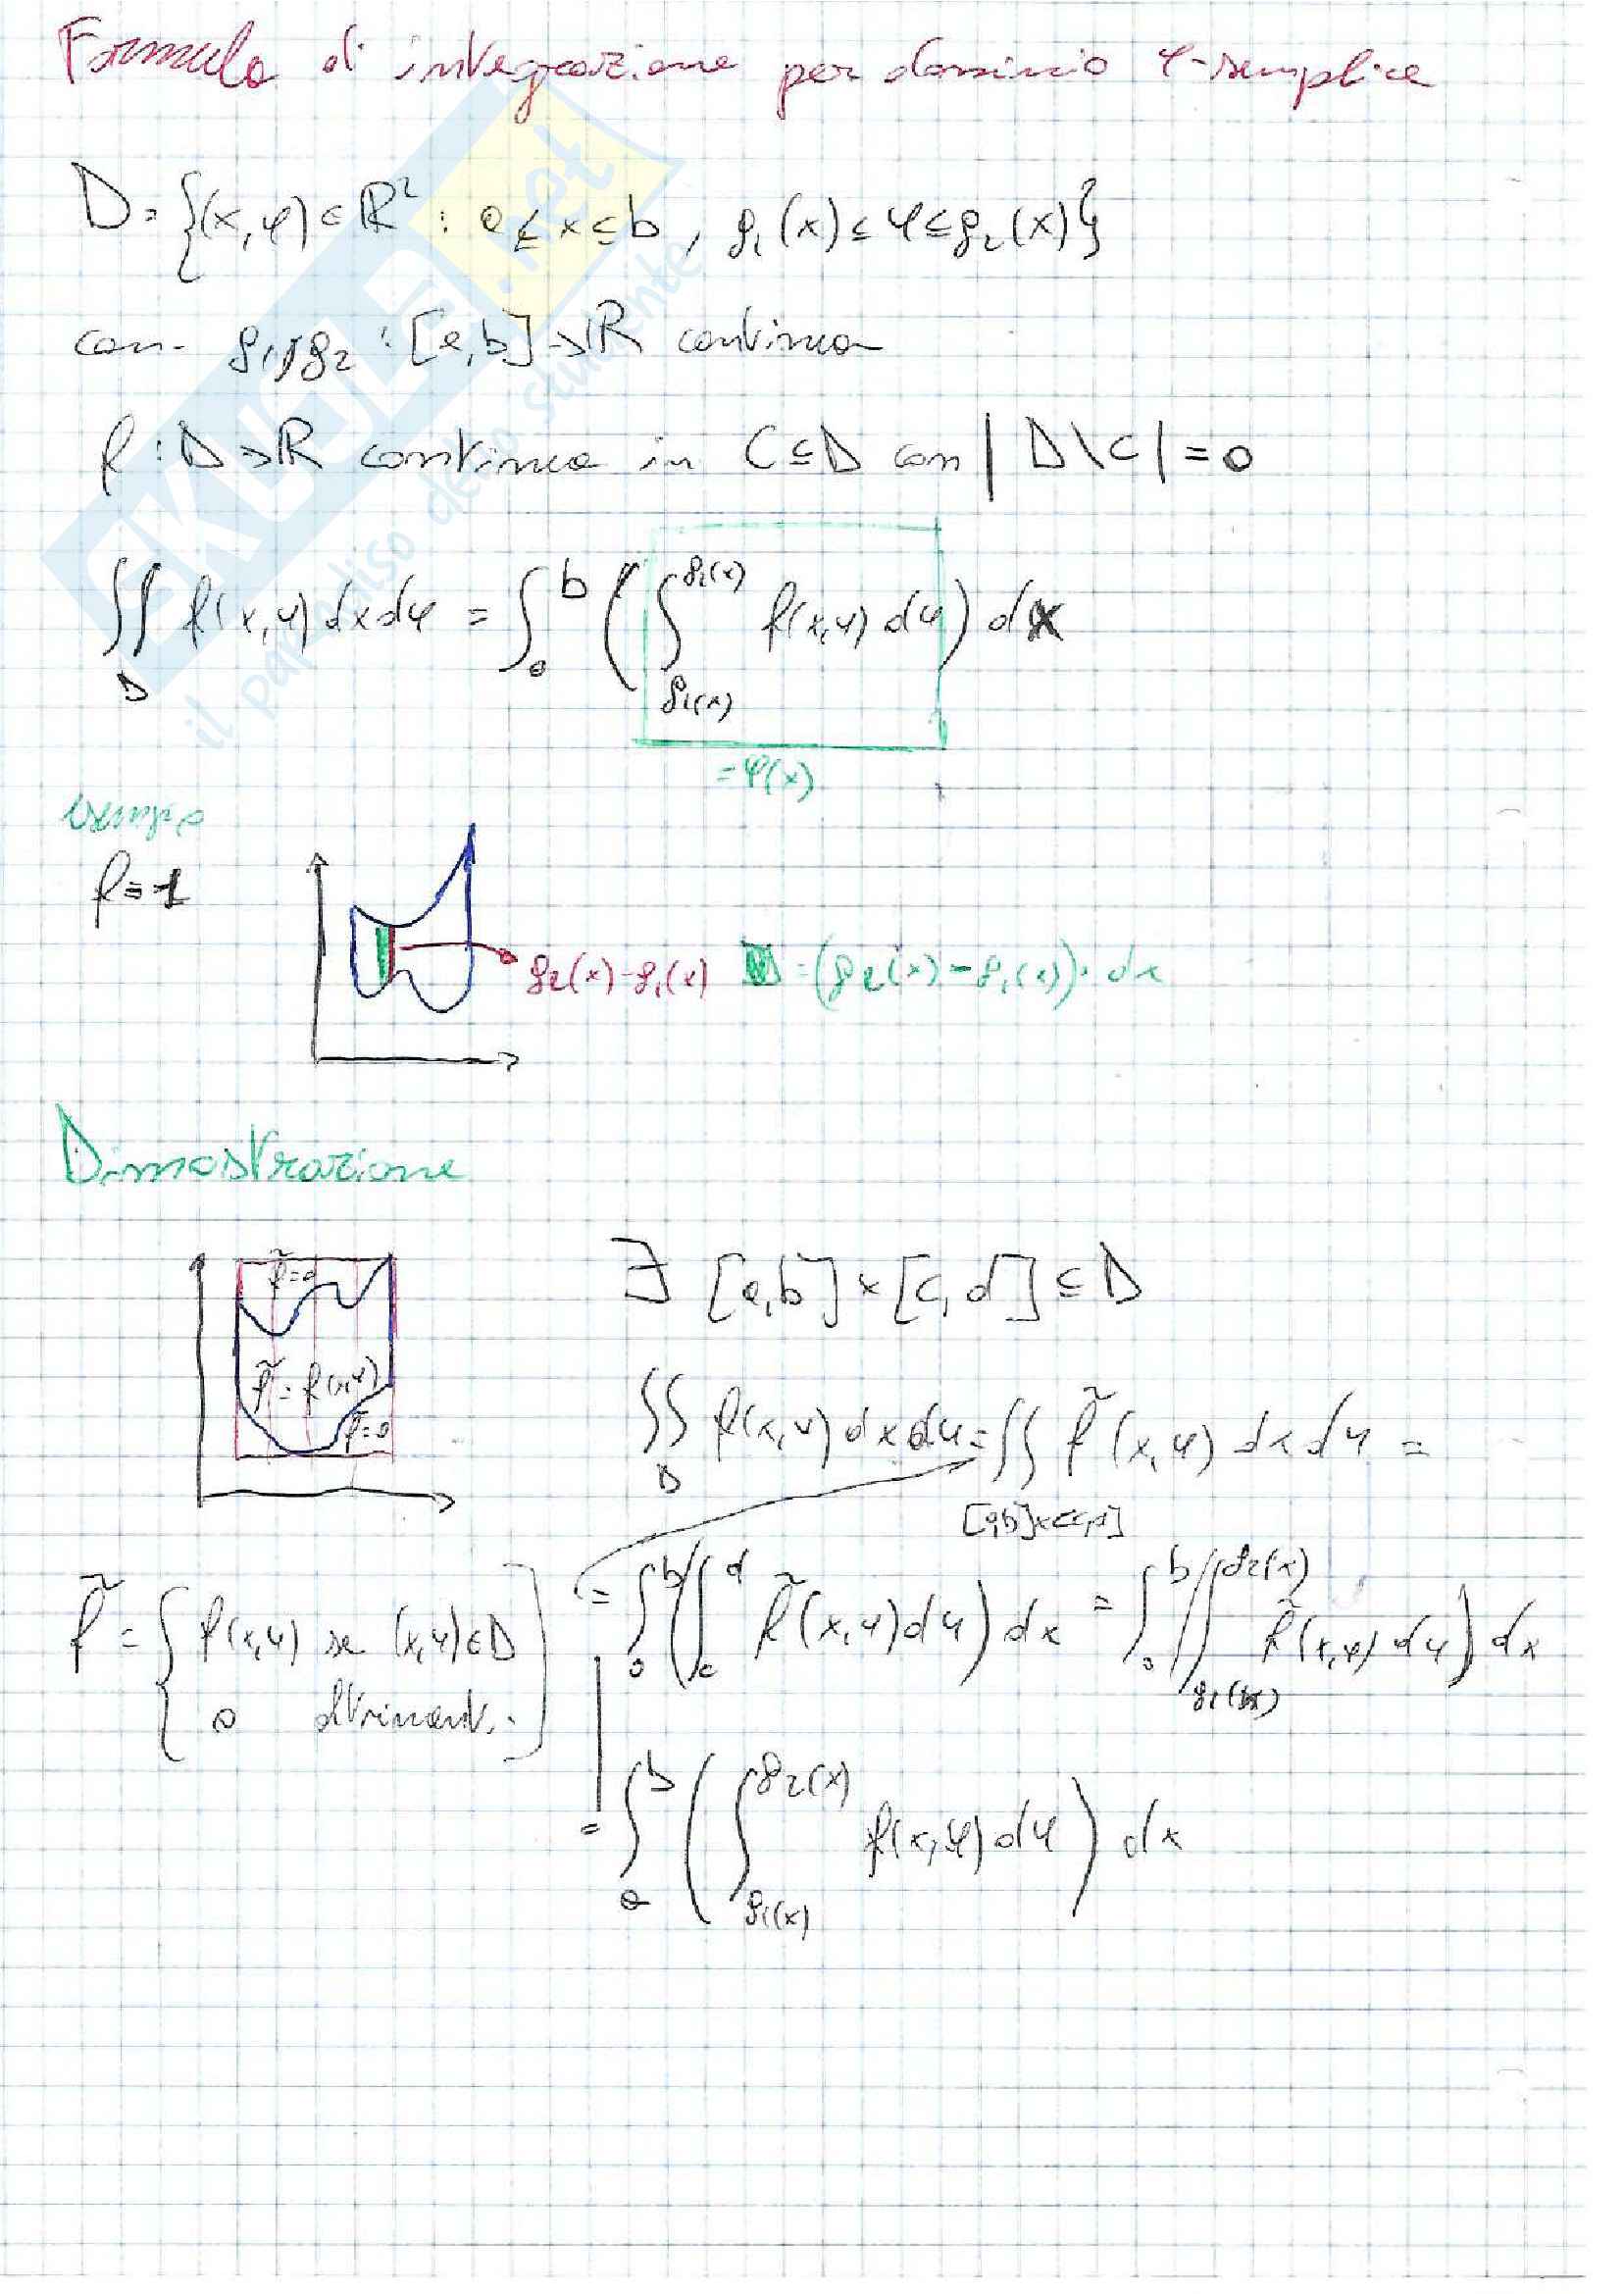 Formula di integrazione per dominio y-semplice
D = {(x,y) ∈ ℝ² : a ≤ x ≤ b , g₁(x) ≤ y ≤ g₂(x)}
con g₁,g₂ : [a,b] → ℝ continua
f : D → ℝ continua in C ⊆ D con |D\C| = 0
∬_D f(x,y) dx dy = ∫_a^b ( ∫_{g₁(x)}^{g₂(x)} f(x,y) dy ) dx
= φ(x)
esempio
f=1
g₂(x)-g₁(x)
= (g₂(x)-g₁(x))· dx
Dimostrazione
f̃=0
f̃ = f(x,y)
f̃=0
∃ [a,b] × [c,d] ⊆ D
∬_D f(x,y) dx dy = ∬_{[a,b]×[c,d]} f̃(x,y) dx dy =
f̃ = { f(x,y) se (x,y) ∈ D
0 altrimenti
= ∫_a^b ( ∫_c^d f̃(x,y) dy ) dx = ∫_a^b ( ∫_{g₁(x)}^{g₂(x)} f̃(x,y) dy ) dx
= ∫_a^b ( ∫_{g₁(x)}^{g₂(x)} f(x,y) dy ) dx
SKUOLA.net
il paradiso dello studente